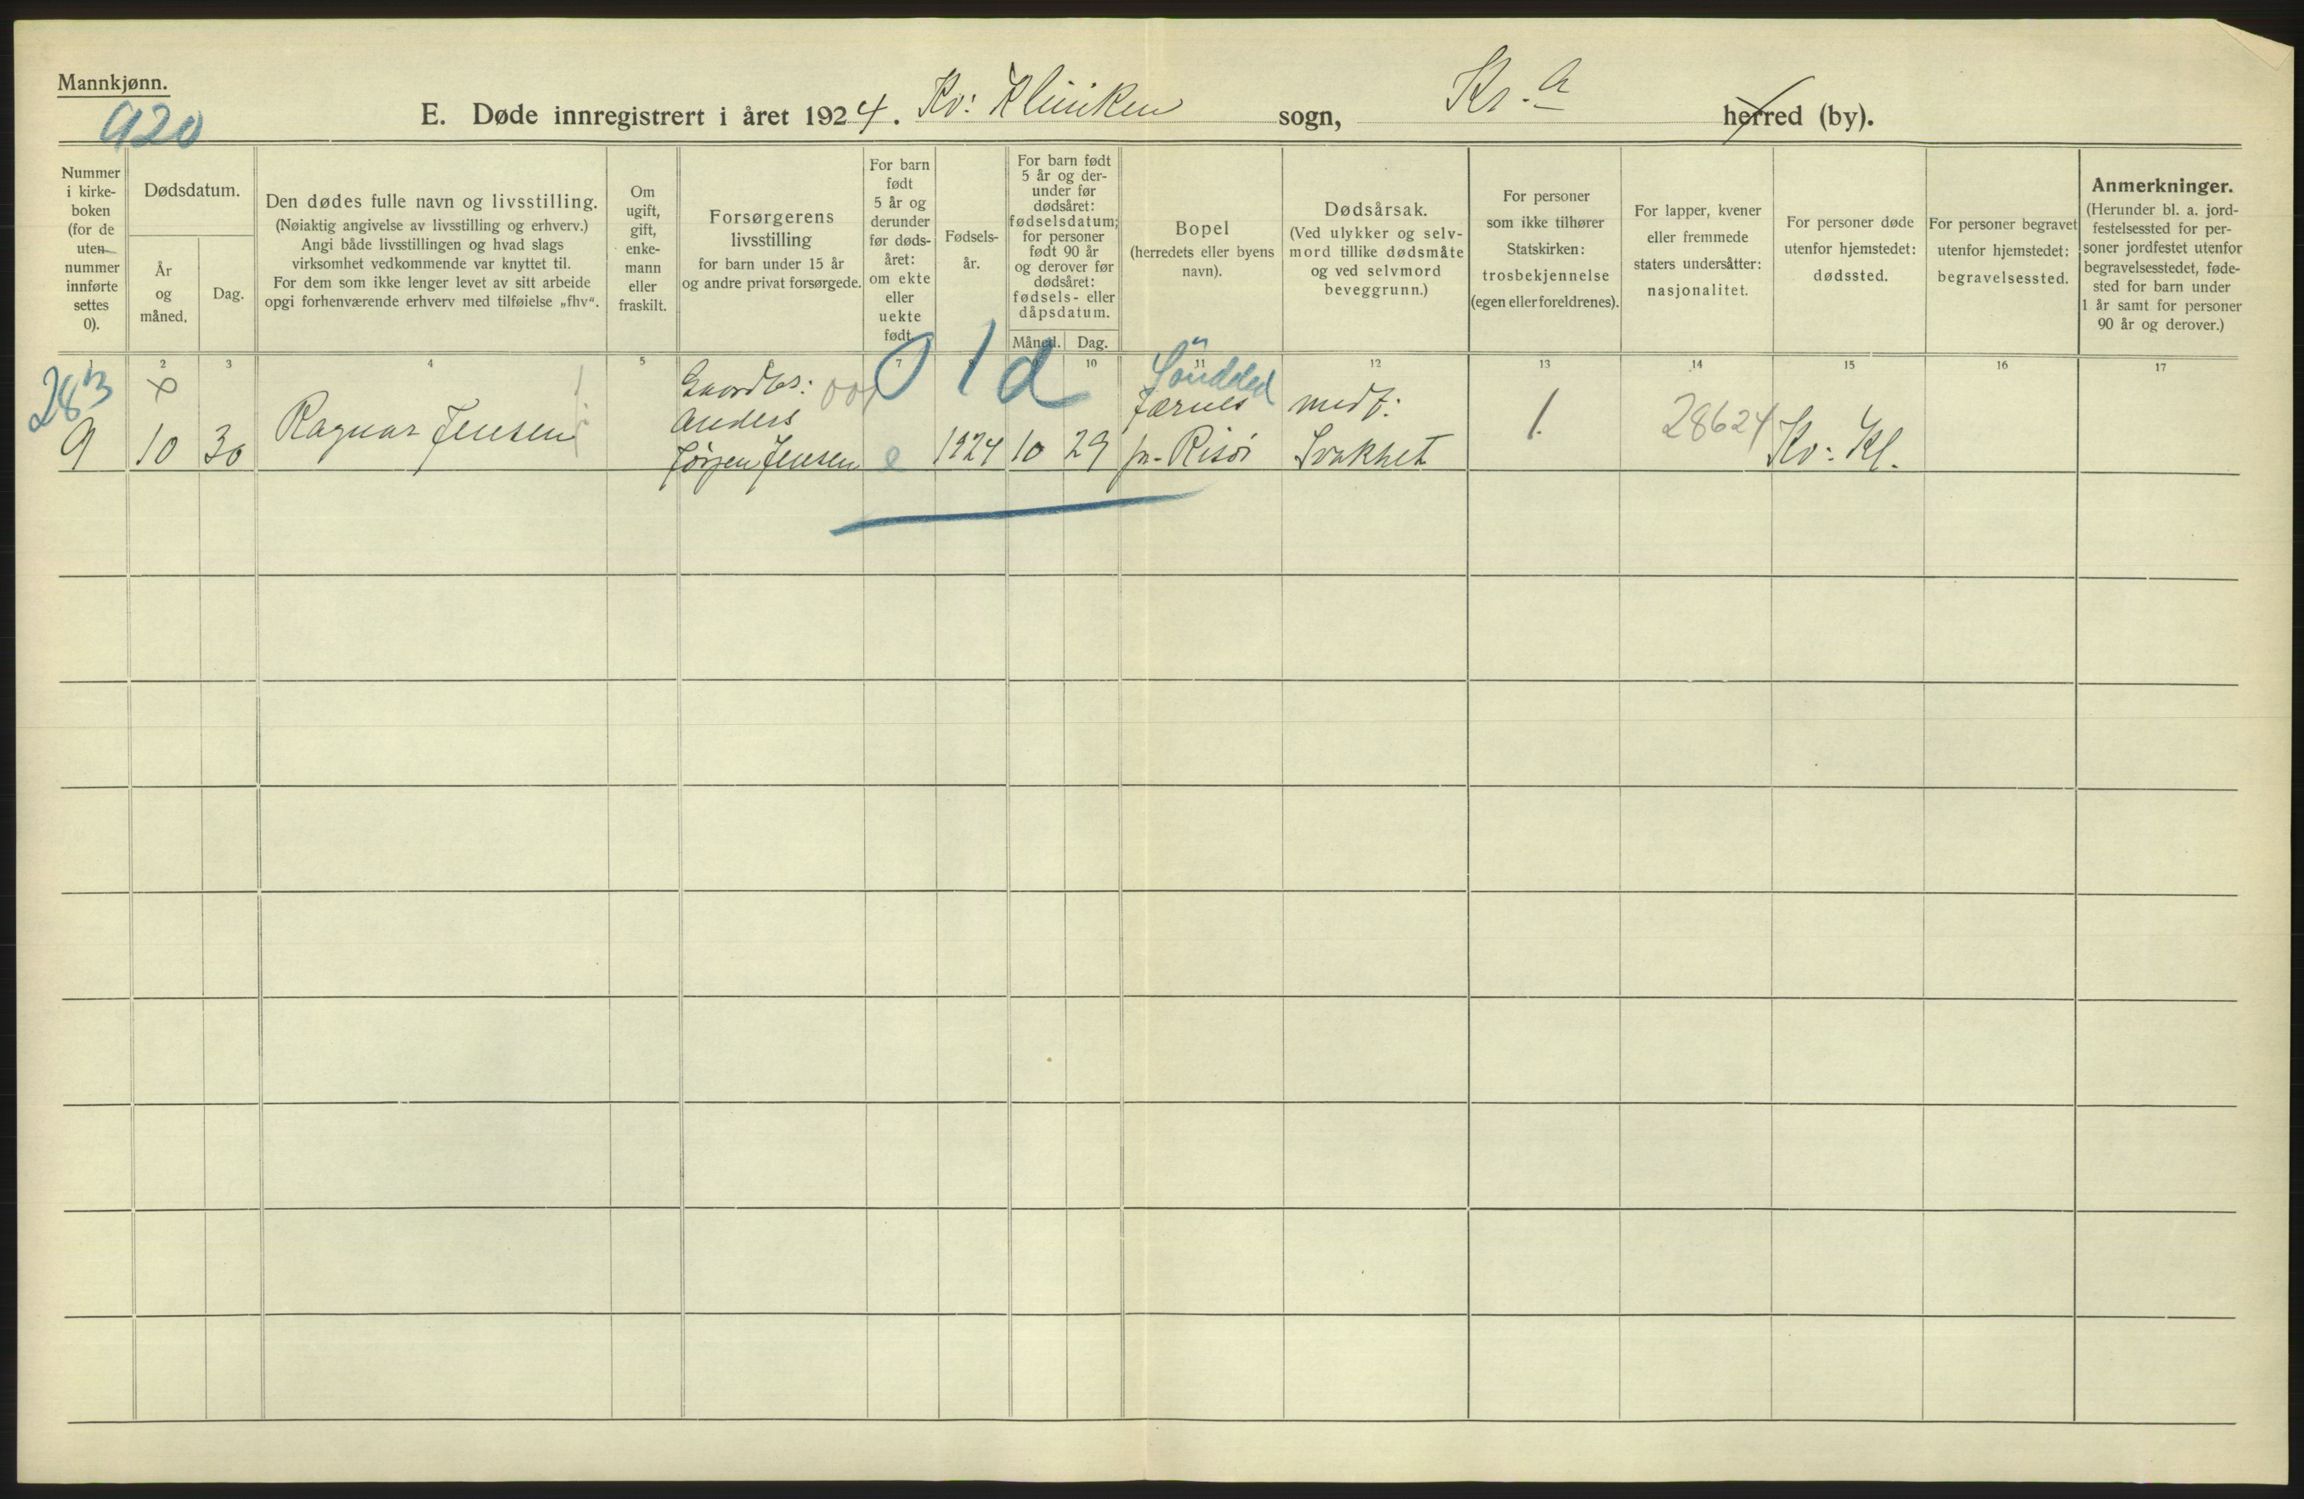 Mannkjønn.
920
E. Døde innregistrert i året 1924. Kv: Kliniken sogn, Kr.a herred (by).
Nummer
i kirke-
boken
(for de
uten
nummer
innførte
settes
0).
Dødsdatum.
År
og
måned.
Dag.
Den dødes fulle navn og livsstilling.
(Nøiaktig angivelse av livsstilling og erhverv.)
Angi både livsstillingen og hvad slags
virksomhet vedkommende var knyttet til.
For dem som ikke lenger levet av sitt arbeide
opgi forhenværende erhverv med tilføielse „fhv“.
Om
ugift,
gift,
enke-
mann
eller
fraskilt.
Forsørgerens
livsstilling
for barn under 15 år
og andre privat forsørgede.
For barn
født
5 år og
derunder
før døds-
året:
om ekte
eller
uekte
født.
Fødsels-
år.
For barn født
5 år og der-
under før
dødsåret:
fødselsdatum;
for personer
født 90 år
og derover før
dødsåret:
fødsels- eller
dåpsdatum.
Måned.
Dag.
Bopel
(herredets eller byens
navn).
Dødsårsak.
(Ved ulykker og selv-
mord tillike dødsmåte
og ved selvmord
beveggrunn.)
For personer
som ikke tilhører
Statskirken:
trosbekjennelse
(egen eller foreldrenes).
For lapper, kvener
eller fremmede
staters undersåtter:
nasjonalitet.
For personer døde
utenfor hjemstedet:
dødssted.
For personer begravet
utenfor hjemstedet:
begravelsessted.
Anmerkninger.
(Herunder bl. a. jord-
festelsessted for per-
soner jordfestet utenfor
begravelsesstedet, føde-
sted for barn under
1 år samt for personer
90 år og derover.)
1 2 3 4 5 6 7 8 9 10 11 12 13 14 15 16 17
283
9
10
30
Ragnar Jensen
Gaardbr:
Anders
Jørgen Jensen
001
0 1 d
e
1924
10
29
Søndeled
Jærnes
pr. Risør
medf:
Svakhet
1.
28624
Kv: Kl.